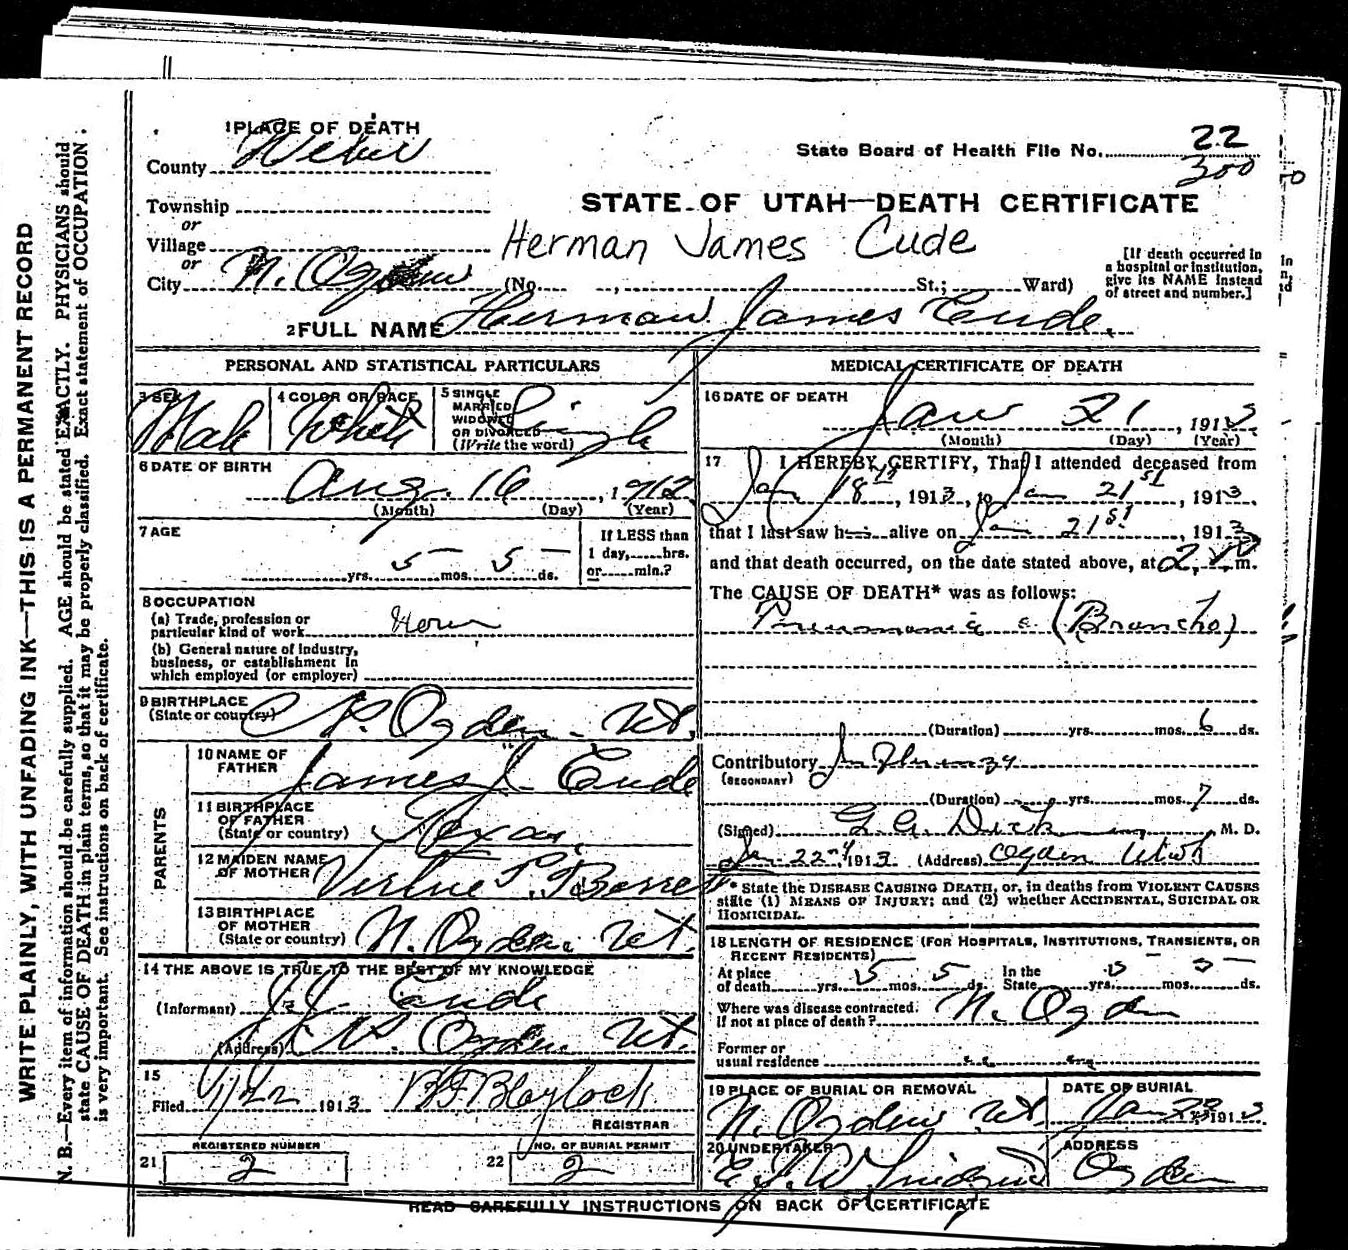 1 PLACE OF DEATH
County Weber
State Board of Health File No. 22
300
Township
or
Village
or
City N. Ogden (No. , St.; Ward)
STATE OF UTAH—DEATH CERTIFICATE
Herman James Cude
[If death occurred in a hospital or institution, give its NAME instead of street and number.]
2 FULL NAME Herman James Cude.
WRITE PLAINLY, WITH UNFADING INK—THIS IS A PERMANENT RECORD
N. B.—Every item of information should be carefully supplied. AGE should be stated EXACTLY. PHYSICIANS should
state CAUSE OF DEATH in plain terms, so that it may be properly classified. Exact statement of OCCUPATION
is very important. See instructions on back of certificate.
PERSONAL AND STATISTICAL PARTICULARS
3 SEX Male
4 COLOR OR RACE White
5 SINGLE MARRIED WIDOWED OR DIVORCED (Write the word) Single
6 DATE OF BIRTH
Aug. 16, 1912
(Month) (Day) (Year)
7 AGE
yrs. 5 mos. 5 ds.
If LESS than
1 day,......hrs.
or......min.?
8 OCCUPATION
(a) Trade, profession or
particular kind of work
(b) General nature of industry,
business, or establishment in
which employed (or employer)
9 BIRTHPLACE
(State or country) N. Ogden Ut.
PARENTS
10 NAME OF FATHER James J. Cude
11 BIRTHPLACE OF FATHER (State or country) Texas.
12 MAIDEN NAME OF MOTHER Virtue
13 BIRTHPLACE OF MOTHER (State or country) N. Ogden. Ut.
14 THE ABOVE IS TRUE TO THE BEST OF MY KNOWLEDGE
(Informant) J. J. Cude
(Address) N. Ogden Ut.
15
Filed 1/22 1913 Blaylock
REGISTRAR
REGISTERED NUMBER
21 2
NO. OF BURIAL PERMIT
22 2
MEDICAL CERTIFICATE OF DEATH
16 DATE OF DEATH
Jan 21, 1913
(Month) (Day) (Year)
17 I HEREBY CERTIFY, That I attended deceased from
Jan 18th, 1913, to Jan 21st, 1913
that I last saw h alive on Jan 21st, 1913
and that death occurred, on the date stated above, at 2 m.
The CAUSE OF DEATH* was as follows:
Pneumonia (Broncho)
(Duration) yrs. mos. 6 ds.
Contributory Influenza
(SECONDARY)
(Duration) yrs. mos. 7 ds.
(Signed) M. D.
Jan 22nd, 1913 (Address) Ogden Utah
* State the DISEASE CAUSING DEATH, or, in deaths from VIOLENT CAUSES
state (1) MEANS OF INJURY; and (2) whether ACCIDENTAL, SUICIDAL OR
HOMICIDAL.
18 LENGTH OF RESIDENCE (FOR HOSPITALS, INSTITUTIONS, TRANSIENTS, OR
RECENT RESIDENTS)
At place of death yrs. 5 mos. 5 ds. In the State yrs. 5 mos. 5 ds.
Where was disease contracted.
If not at place of death? N. Ogden
Former or
usual residence
19 PLACE OF BURIAL OR REMOVAL
N. Ogden Ut.
DATE OF BURIAL
Jan 23 1913
20 UNDERTAKER
ADDRESS
Ogden
READ CAREFULLY INSTRUCTIONS ON BACK OF CERTIFICATE